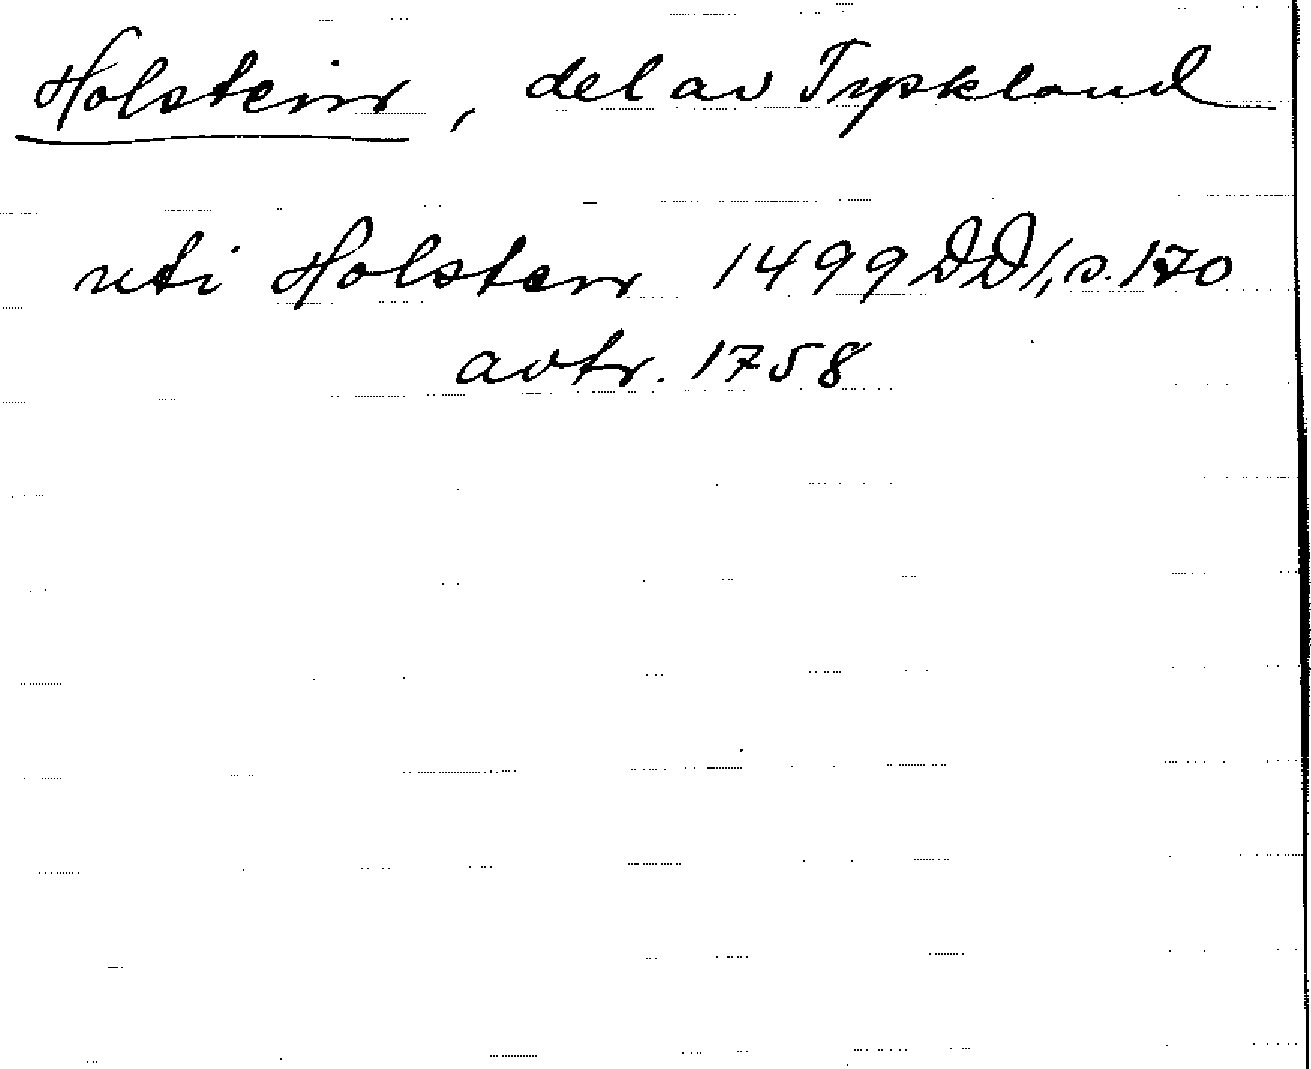 Holstein, del av Tyskland
uti Holsten 1499 DD1, s. 170
avtr. 1758